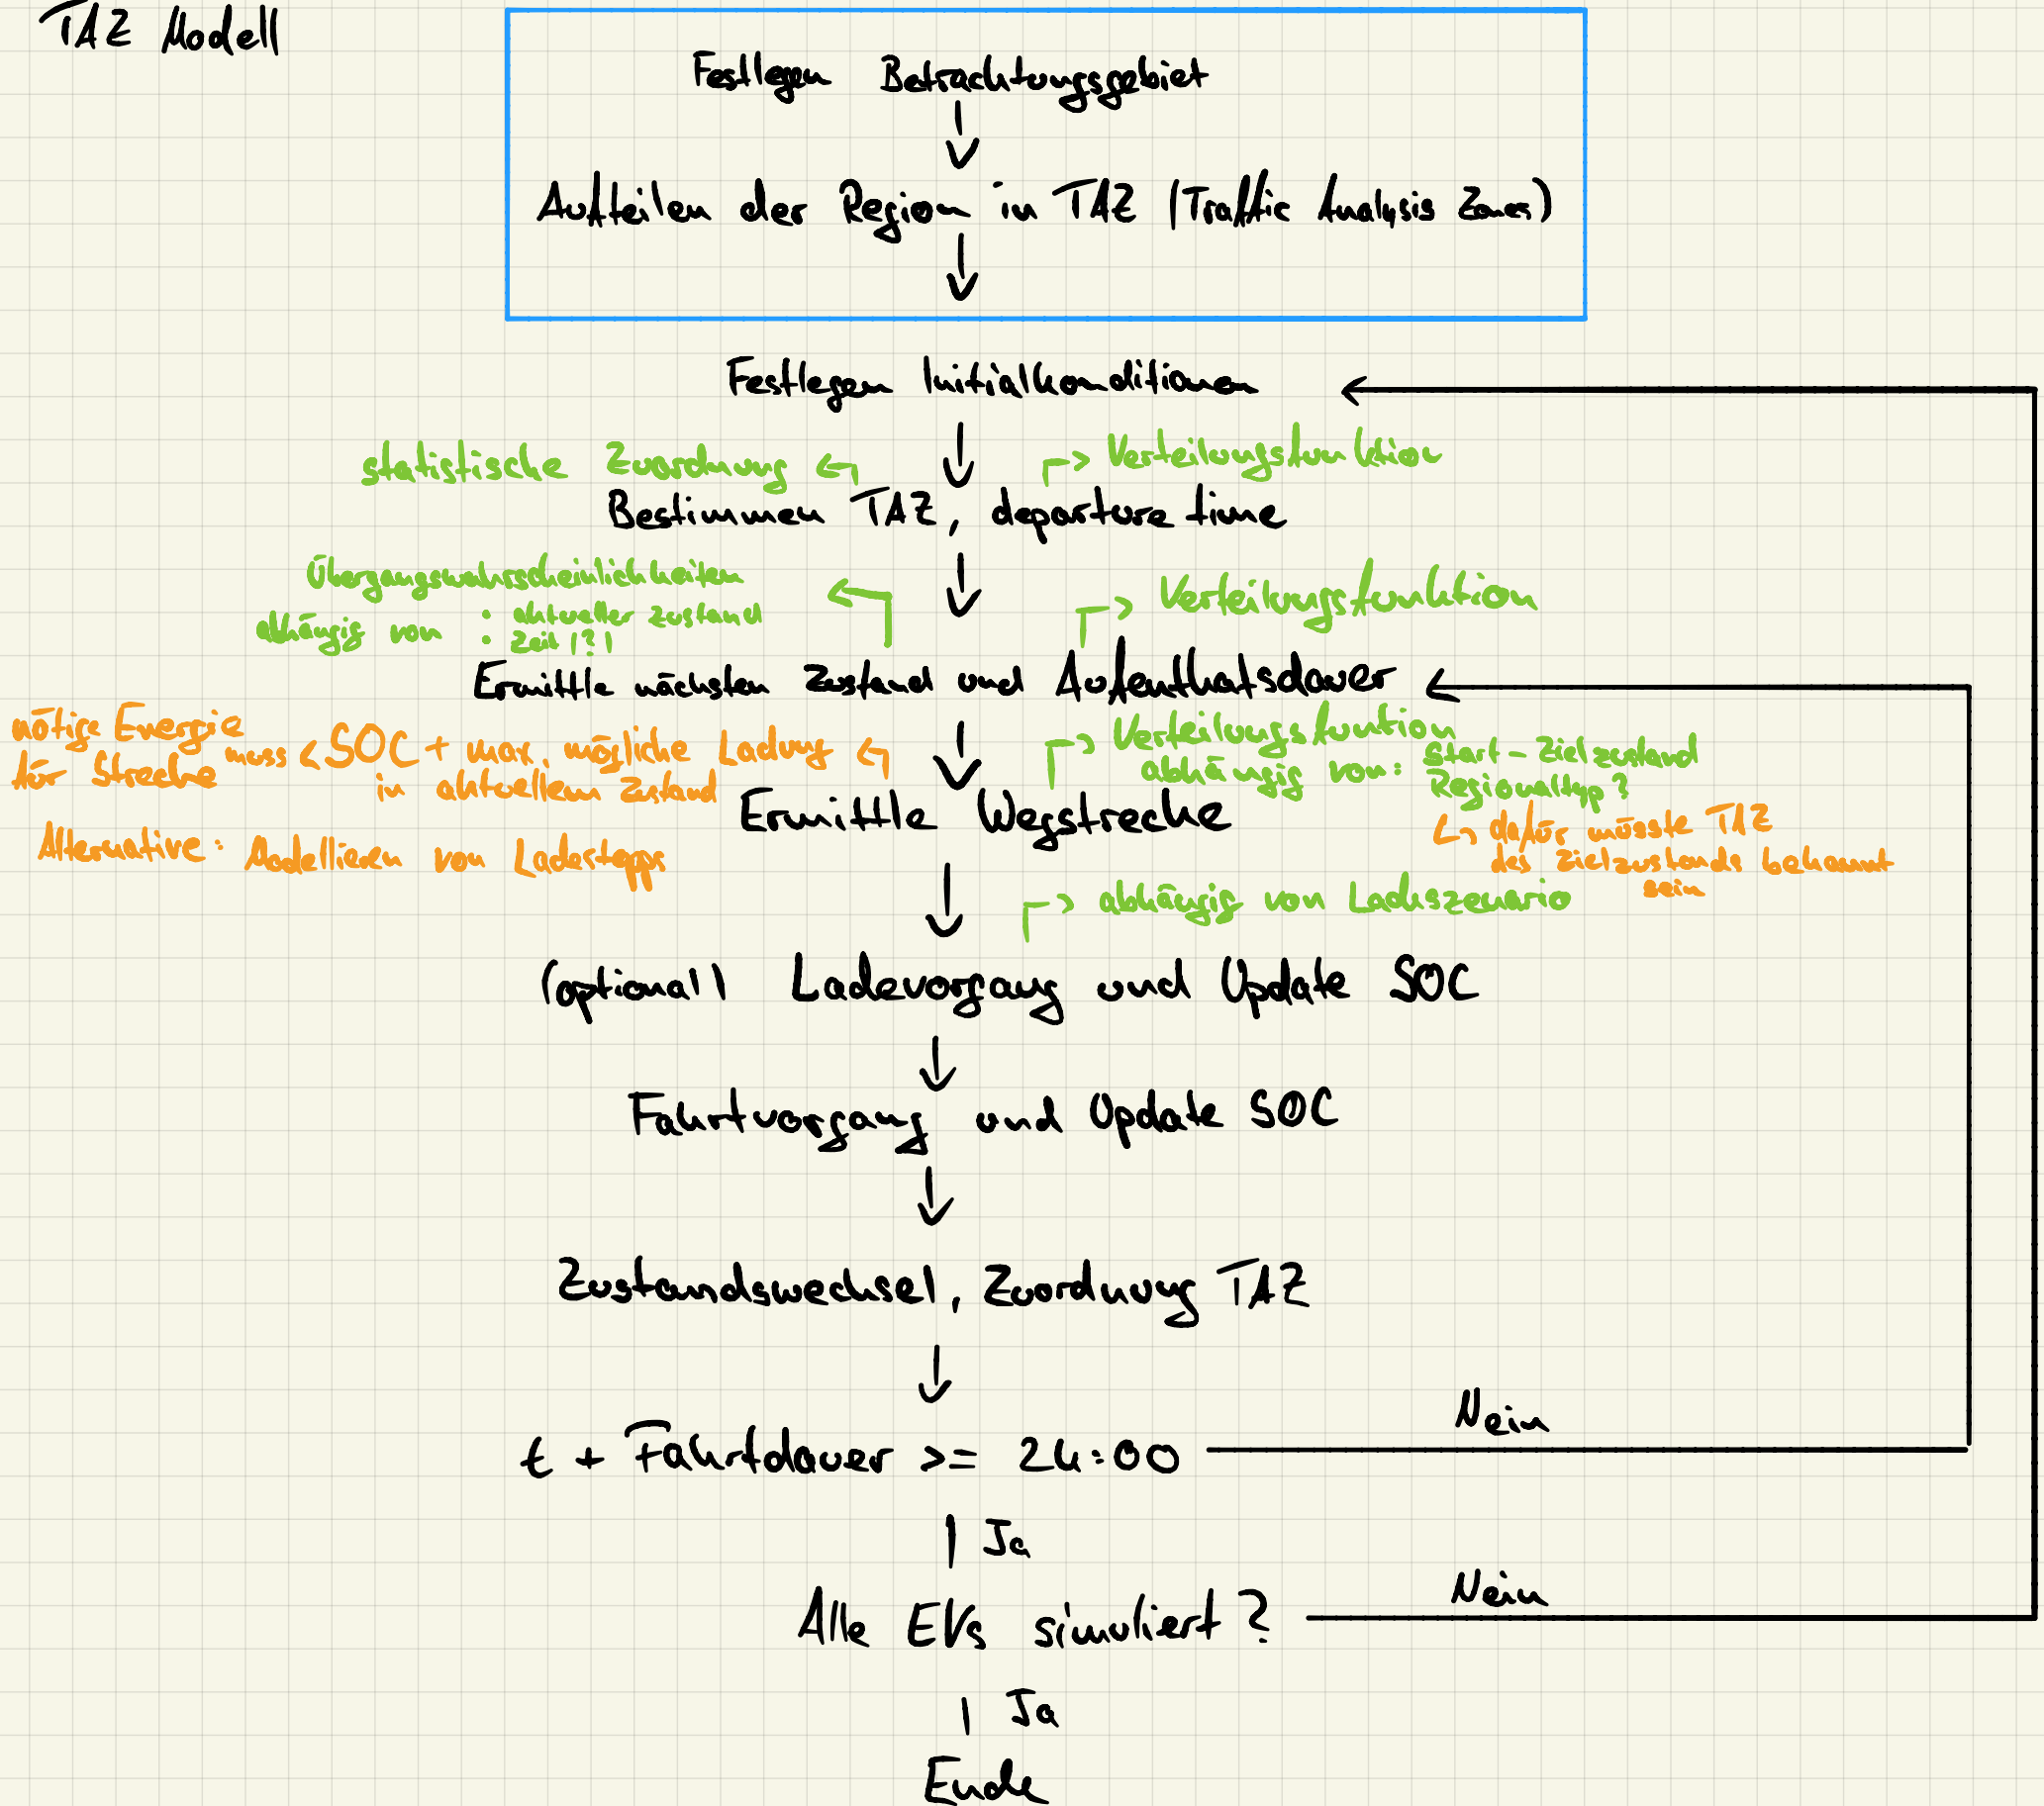 TAZ Modell
Festlegen Betrachtungsgebiet
Aufteilen der Region in TAZ (Traffic Analysis Zones)
Festlegen Initialkonditionen
statistische Zuordnung
Verteilungsfunktion
Bestimmen TAZ, departure time
Übergangswahrscheinlichkeiten
abhängig von : aktueller Zustand
: Zeit (?)
Verteilungsfunktion
Ermittle nächsten Zustand und Aufenthatsdauer
nötige Energie
für Strecke muss < SOC + max. mögliche Ladung
in aktuellem Zustand
Alternative: Modellieren von Ladestopps
Verteilungsfuntion
abhängig von: Start-Zielzustand
Regionaltyp?
dafür müsste TAZ
des Zielzustands bekannt
sein
Ermittle Wegstrecke
abhängig von Ladeszenario
(optional) Ladevorgang und Update SOC
Fahrtvorgang und Update SOC
Zustandswechsel, Zuordnung TAZ
t + Fahrtdauer >= 24:00
Nein
Ja
Alle EVs simuliert?
Nein
Ja
Ende